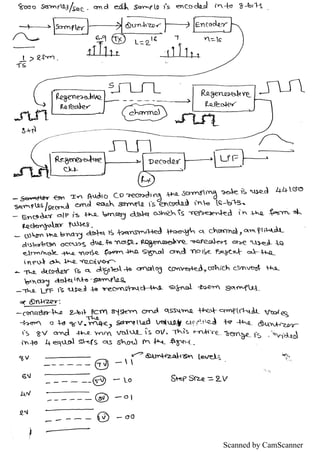 8000 samples/sec. and each sample is encoded in to 8-bits.
Sampler
Quntizer
Encoder
6.9
Tx
L=2¹⁶
7
n=16
1/Ts > 2fm.
S
Regenerative
Repeater
channel
Regenerative
Repeater
S+N
Regenerative
CKt
Decoder
LPF
Rx
- In Audio CD recording the sampling rate is used 44100
samples/second and each sample is encoded into 16-bits.
- Encoder O/P is the binary data which is represented in the form of
Rectangular pulses.
- When the binary data is transmitted through a channel, amplitude
distortion occurs due to noise. Regenerative repeaters are used to
eliminate the noise form the signal and noise at the
input of the receiver
- The decoder is a digital to analog converted, which convert the
binary data into samples.
- The LPF is used to reconstruct the signal from samples.
* Quntizer:
- consider the 2-bit PCM system and assume that amplitude varies
from 0 to 8V. The max, sampled value applied to the Quntizer
is 8V and the min value is 0V. This entire range is divided
into 4 equal steps as show in the figure.
8V
7V - 11
Quntization levels
6V
5V - 10
Step Size = 2V
4V
3V - 01
2V
1V - 00
Scanned by CamScanner